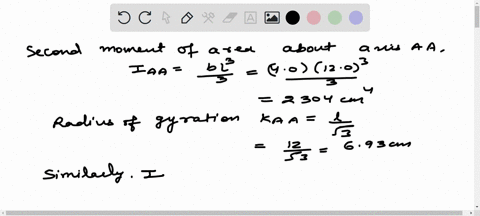 Second moment of area about axis AA,
I_AA = bl³/3 = (4.0)(12.0)³/3
= 2304 cm⁴
Radius of gyration K_AA = l/√3
= 12/√3 = 6.93 cm
Similarly. I